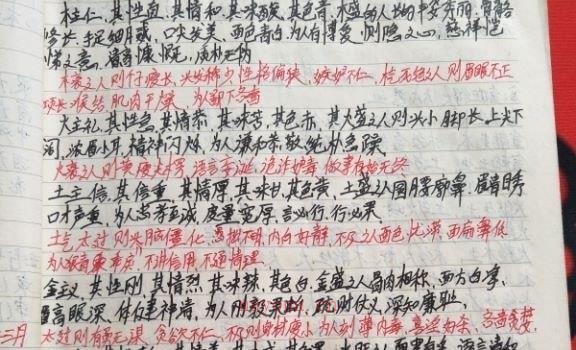 木主仁，其性直，其情和，其味酸，其色青，木盛的人长的丰姿秀丽，骨骼
修长，手足细腻，口尖发美，面色青白，为人有博爱，恻隐之心，慈祥恺
悌之意，清高慷慨，质朴无伪
木衰之人则个瘦长，头发稀少，性格偏狭，嫉妒不仁，木死绝之人则眉眼不正
项长喉结，肌肉干燥，为人鄙下吝啬
火主礼，其性急，其情恭，其味苦，其色赤，其火盛之人则头小脚长，上尖下
阔，浓眉小耳，精神闪烁，为人谦和恭敬，纯朴急躁
火衰之人则黄瘦尖楞，语言妄诞，诡诈妒毒，做事有始无终
土主信，其性重，其情厚，其味甘，其色黄，土盛之人圆腰廓鼻，眉清目秀
口才声重，为人忠孝至诚，度量宽厚，言必行，行必果
土气太过则头脑僵化，愚拙不明，内向好静，不及之人面色忧滞，面扁鼻低
为人狠毒乖戾，不讲信用，不通情理
金主义，其性刚，其情烈，其味辣，其色白，金盛之人骨肉相称，面方白净，
眉高眼深，体健神清，为人刚毅果断，疏财仗义，深知廉耻，
三月 太过则有勇无谋，贪欲不仁，不及则身材瘦小，为人刻薄内毒，喜淫好杀，吝啬贪婪，